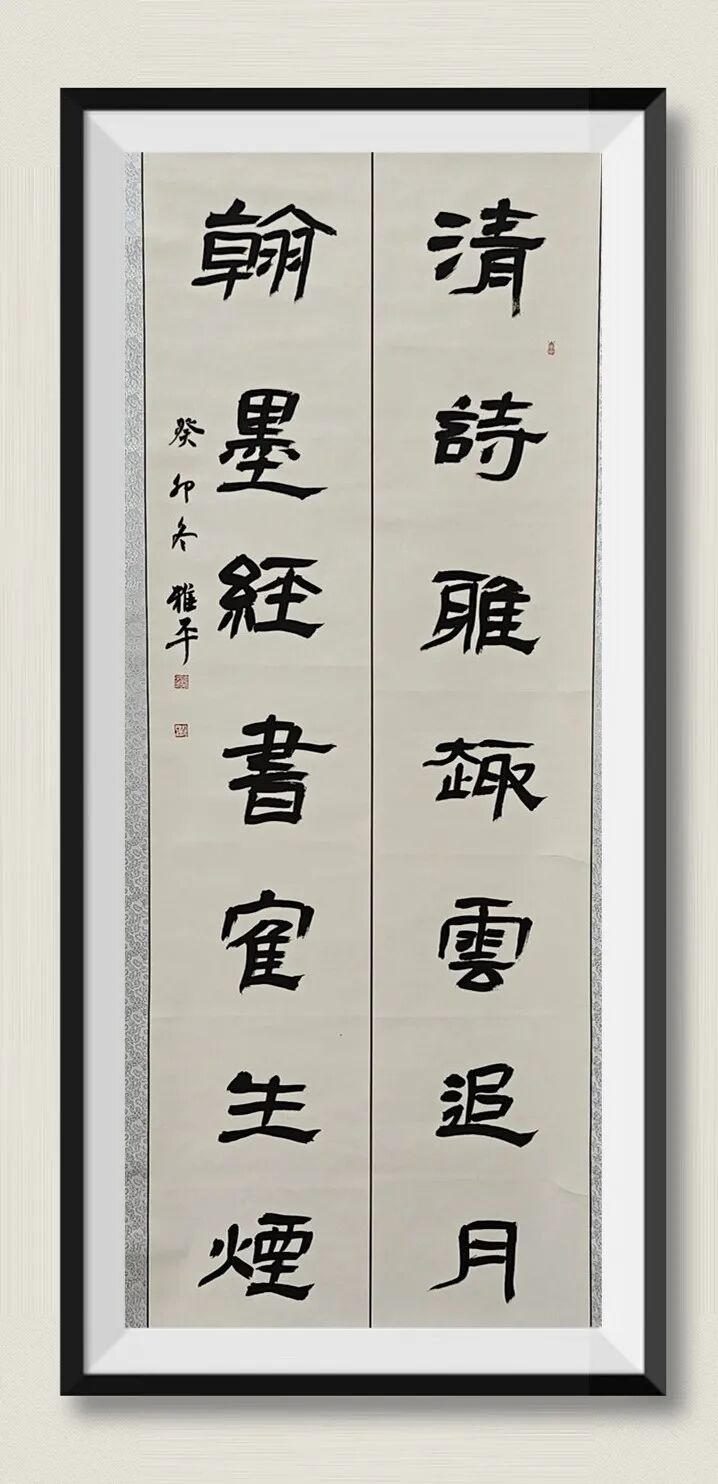 清詩雅趣雲追月
翰墨經書寉生煙
癸卯冬 雅平